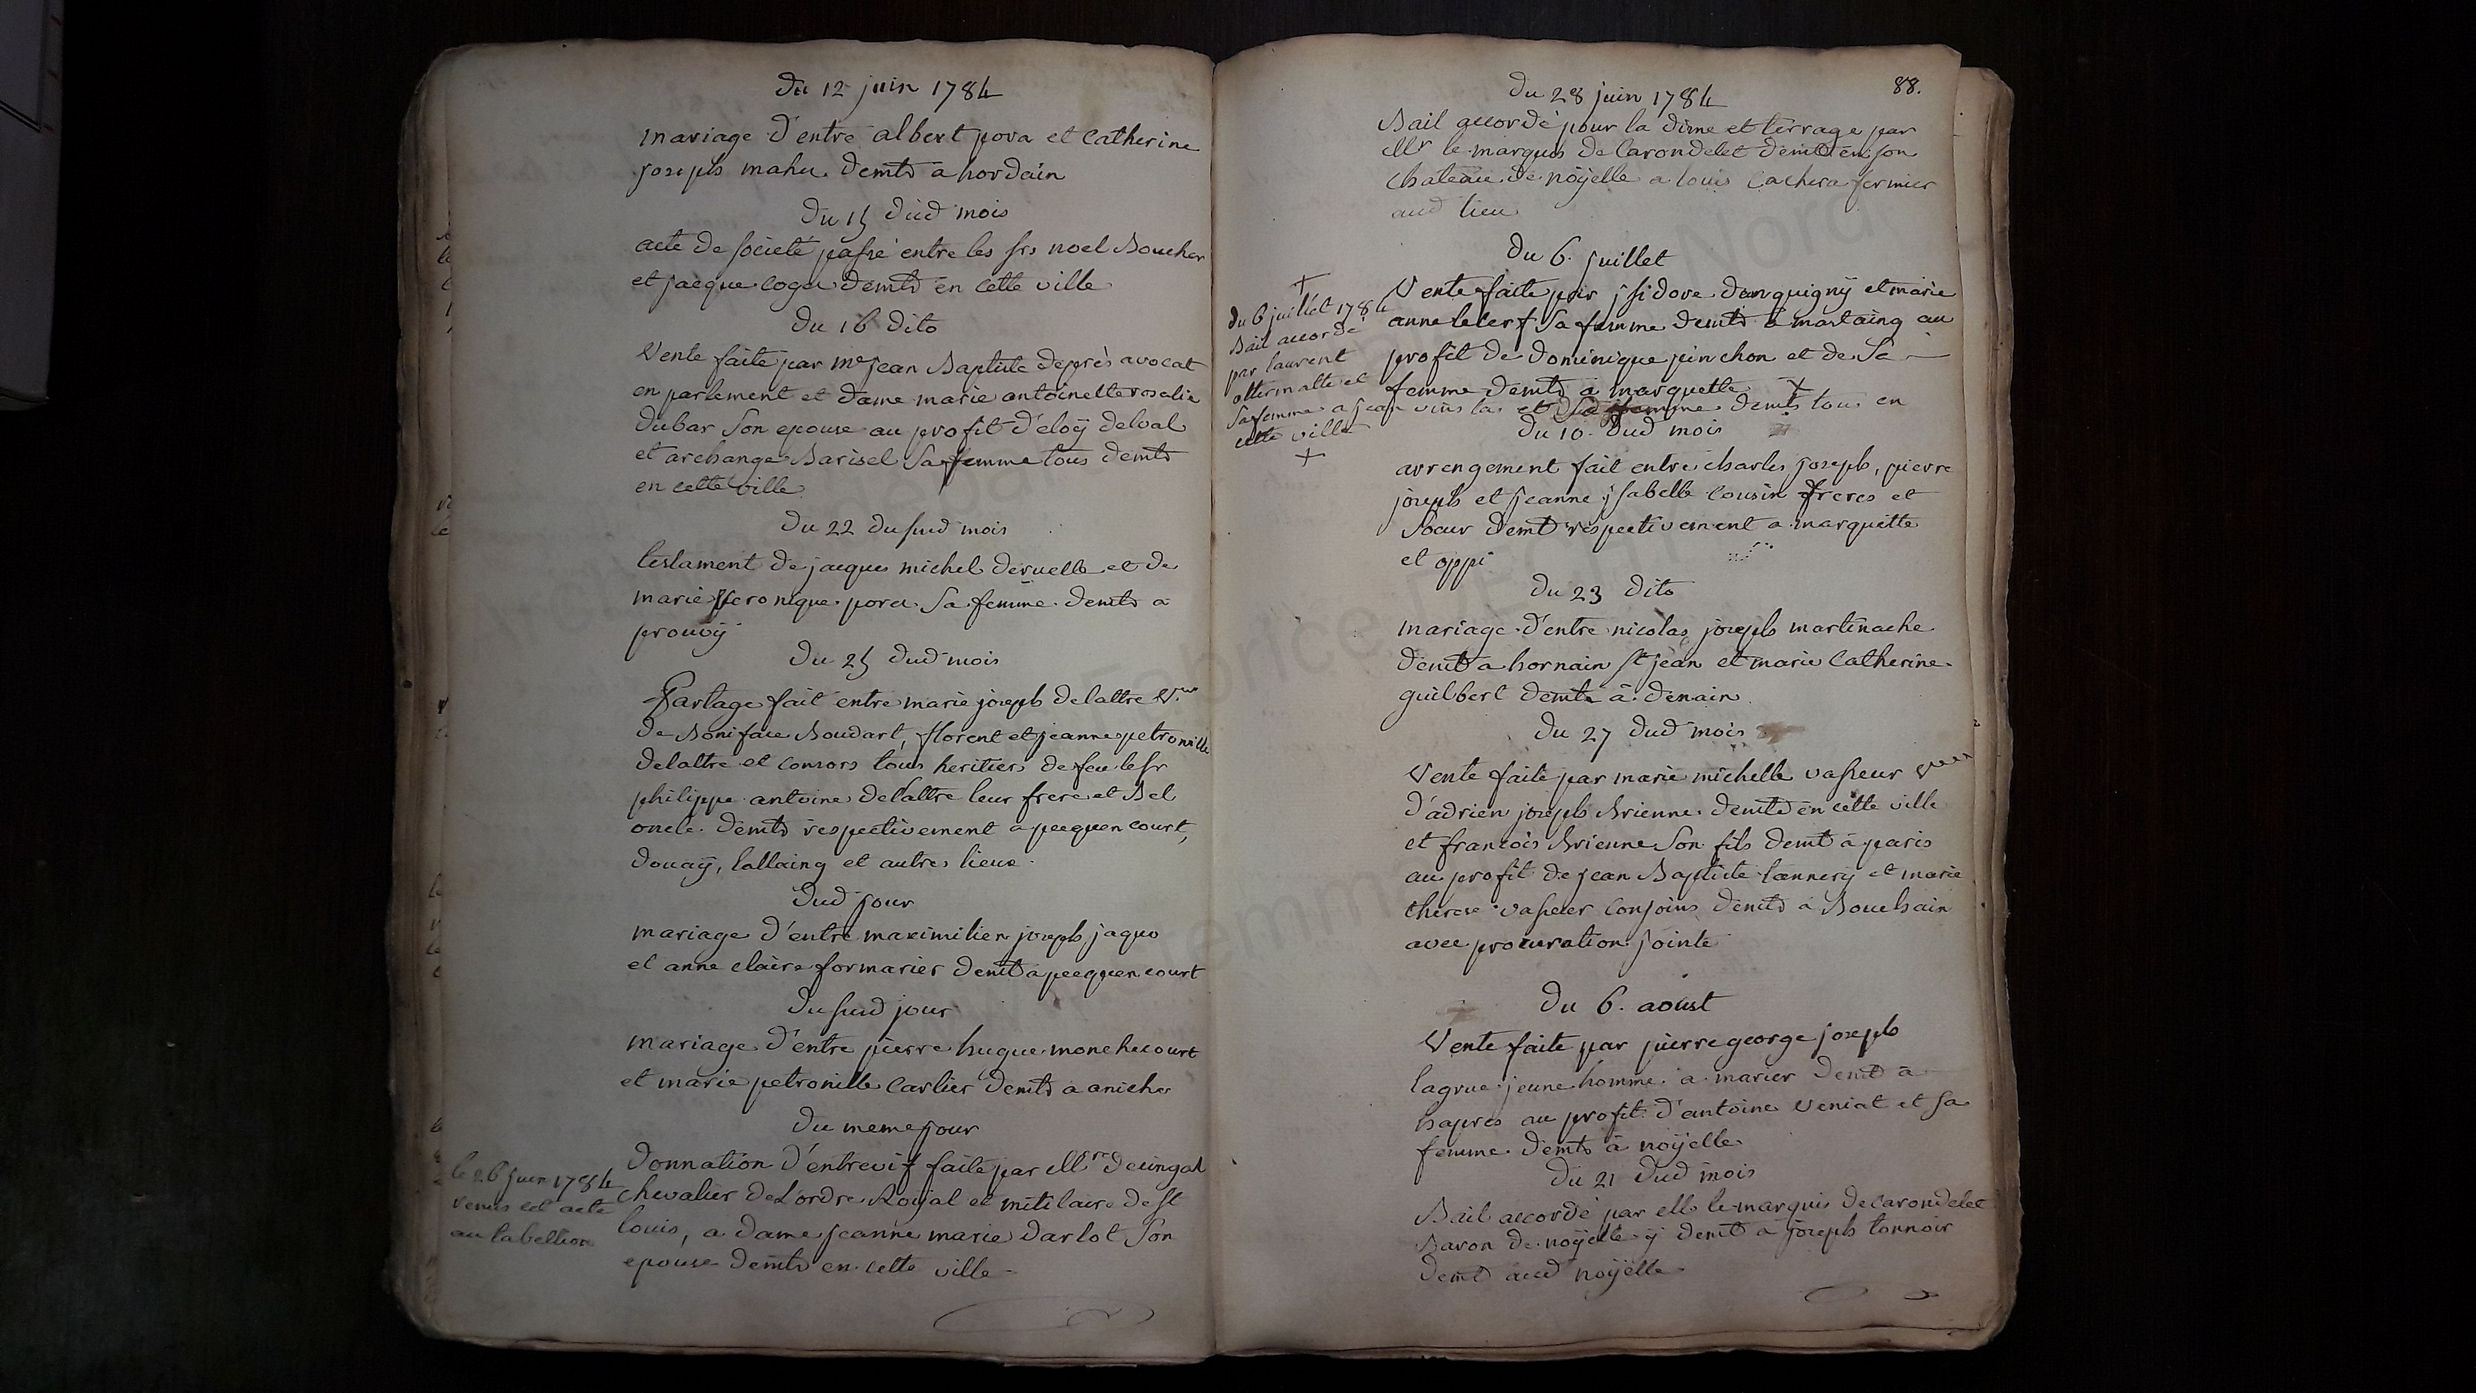 Du 12 juin 1784
mariage d'entre albert pora et Catherine
joseph mahu demts a hordain
Du 15 dud mois
acte de societé passé entre les srs noel Boucher
et jacque coget demts en cette ville
Du 16 dito
Vente faite par me jean Baptiste deprés avocat
en parlement et dame marie antoinette rosalie
dubar son epouse au profit d'eloÿ delval
et archange Barisel sa femme tous demts
en cette ville
Du 22 dusud mois
testament de jacques michel deruelle et de
marie Veronique pora sa femme demts a
prouvÿ
Du 25 dud mois
Partage fait entre marie joseph delattre Vve
de Boniface Boudart, florent et jeanne petronille
delattre et consors tous heritiers de feu le sr
philippe antoine delattre leur frere et Bel
oncle demts respectivement a pecquencourt,
douaÿ, lallaing et autres lieux
Dud jour
mariage d'entre maximilien joseph jaquo
et anne claire formarier demts a pecquencourt
Dusud jour
mariage d'entre pierre hugue monchecourt
et marie petronille Carlier demts a aniche
Du meme jour
le 26 juin 1784
remis cet acte
au tabellion
donnation d'entrevif faite par Mr
chevalier de L'ordre Royal et militaire de st
louis, a dame jeanne marie darlot son
epouse demts en cette ville
88.
Du 28 juin 1784
Bail accordé pour la dime et terrage par
Mr le marquis de Carondelet demt en son
chateau de noÿelle a louis Cachera fermier
aud lieu
Du 6. juillet
Vente faite par jsidore danquignÿ et marie
anne leclerf sa femme demts a mastaing au
profit de dominique pinchon et de sa
femme demts a marquette
+
du 6 juillet 1784
Bail accordé
par laurent
sa femme a jean et sa femme demts tous en
cette ville
+
Du 10. dud mois
arrengement fait entre charles joseph, pierre
joseph et jeanne jsabelle Cousin freres et
soeur demts respectivement a marquette
et oppi
Du 23 dito
mariage d'entre nicolas joseph martinache
demt a hornain st jean et marie Catherine
guilbert demte a denain
Du 27 dud mois
Vente faite par marie michelle vasseur
d'adrien joseph Brienne demte en cette ville
et francois Brienne son fils demt a paris
au profit de jean Baptiste tannerÿ et marie
therese vasseur conjoins demts a Bouchain
avec procuration jointe
Du 6. aoust
Vente faite par pierre george joseph
lagrue jeune homme a marier demt a
hapres au profit d'antoine Veniat et sa
femme demts a noÿelle
Du 21 dud mois
Bail accordé par Mr le marquis de Carondelet
Baron de noÿelle ÿ demt a joseph tonnoir
demt aud noÿelle